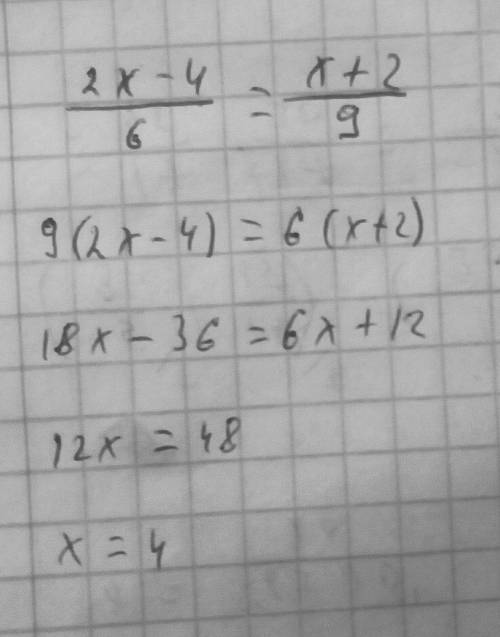 2x-4 / 6 = x+2 / 9
9(2x-4) = 6(x+2)
18x-36 = 6x+12
12x = 48
x = 4